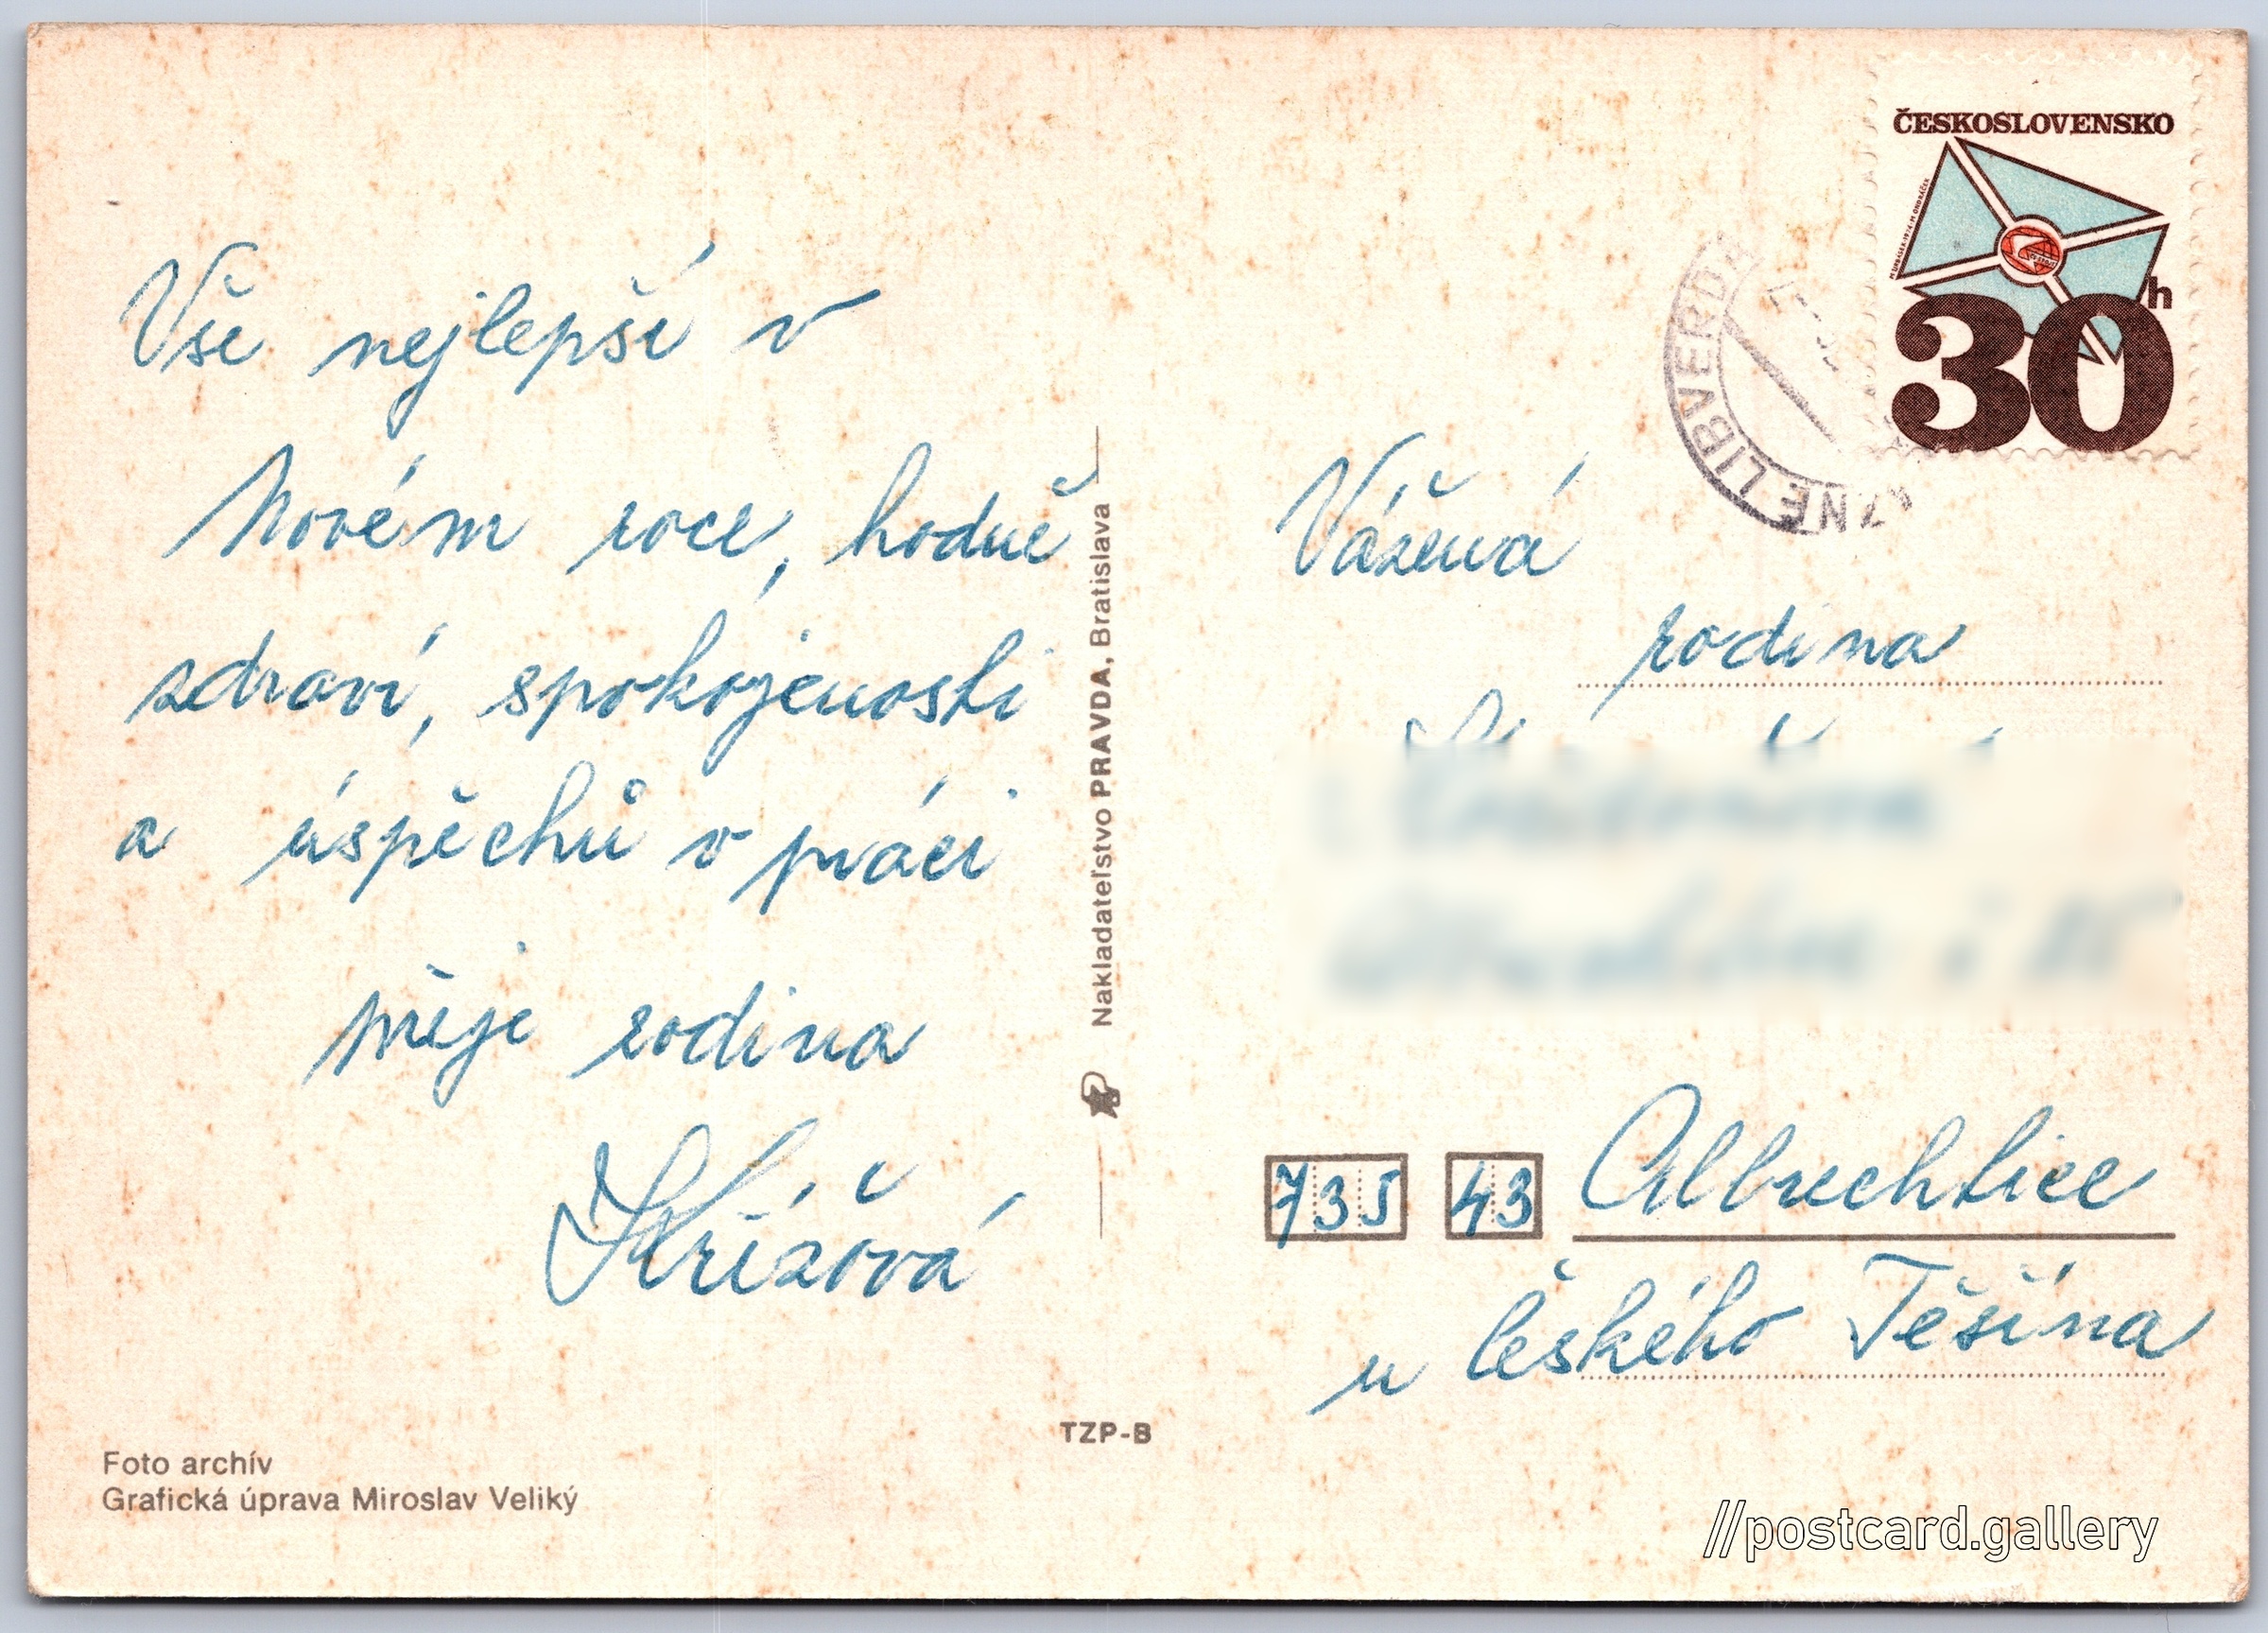 Vše nejlepší v
Novém roce, hodně
zdraví, spokojenosti
a úspěchů v práci
přeje rodina
Křížová
Foto archív
Grafická úprava Miroslav Veliký
Nakladateľstvo PRAVDA, Bratislava
TZP-B
ČESKOSLOVENSKO
30h
ZNĚ LIBVERDA
Vážená
rodina
735 43 Albrechtice
u Českého Těšína
//postcard.gallery